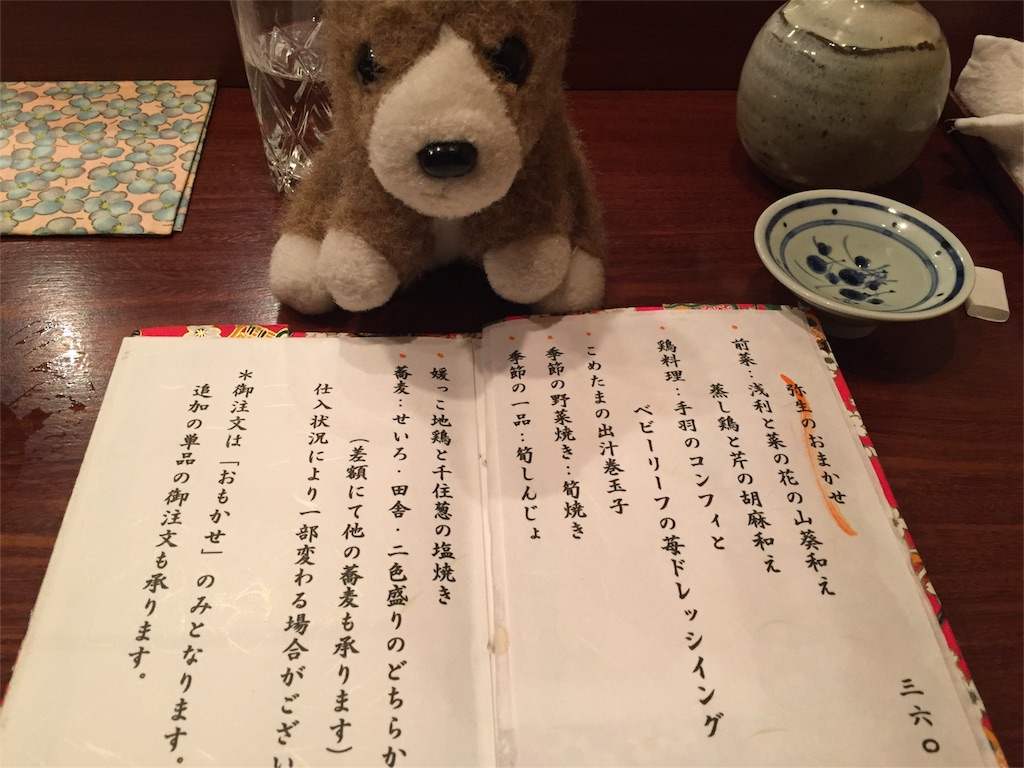 弥生のおまかせ
三六〇
前菜：浅利と菜の花の山葵和え
蒸し鶏と芹の胡麻和え
鶏料理：手羽のコンフィと
ベビーリーフの苺ドレッシイング
こめたまの出汁巻玉子
季節の野菜焼き：筍焼き
季節の一品：筍しんじょ
媛っこ地鶏と千住葱の塩焼き
蕎麦：せいろ・田舎・二色盛りのどちらか
（差額にて他の蕎麦も承ります）
仕入状況により一部変わる場合がござい
＊御注文は「おもかせ」のみとなります。
追加の単品の御注文も承ります。